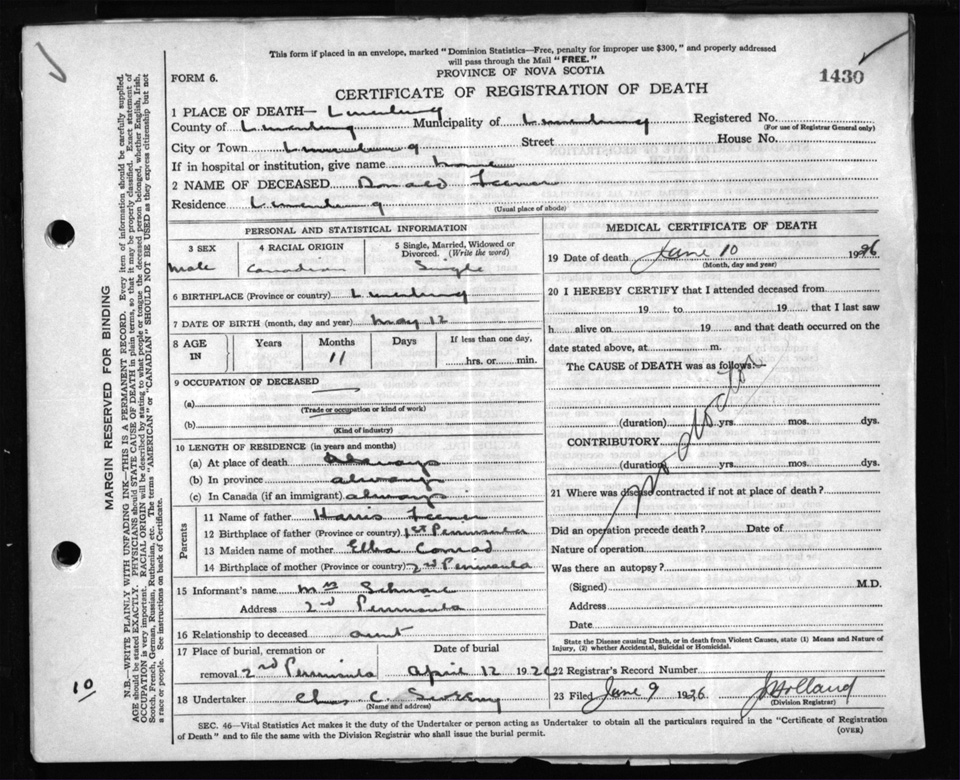 This form if placed in an envelope, marked "Dominion Statistics—Free, penalty for improper use $300," and properly addressed
will pass through the Mail "FREE."
PROVINCE OF NOVA SCOTIA
FORM 6.
1430
CERTIFICATE OF REGISTRATION OF DEATH
1 PLACE OF DEATH— Lunenburg
County of Lunenburg Municipality of Lunenburg Registered No.
(For use of Registrar General only)
City or Town Lunenburg Street House No.
If in hospital or institution, give name home
2 NAME OF DECEASED Donald Feener
Residence Lunenburg
(Usual place of abode)
PERSONAL AND STATISTICAL INFORMATION
3 SEX 4 RACIAL ORIGIN 5 Single, Married, Widowed or
Divorced. (Write the word)
Male Canadian Single
6 BIRTHPLACE (Province or country) Lunenburg
7 DATE OF BIRTH (month, day and year) May 12
8 AGE IN Years Months Days If less than one day,
11 hrs. or min.
9 OCCUPATION OF DECEASED
(a)
(Trade or occupation or kind of work)
(b)
(Kind of industry)
10 LENGTH OF RESIDENCE (in years and months)
(a) At place of death always
(b) In province always
(c) In Canada (if an immigrant) always
Parents
11 Name of father Harris Feener
12 Birthplace of father (Province or country) 1st Peninsula
13 Maiden name of mother Ella Conrad
14 Birthplace of mother (Province or country) 2nd Peninsula
15 Informant's name Mrs
Address 2nd Peninsula
16 Relationship to deceased aunt
17 Place of burial, cremation or Date of burial
removal 2nd Peninsula April 12 192
18 Undertaker Chas C.
(Name and address)
MEDICAL CERTIFICATE OF DEATH
19 Date of death June 10 19
(Month, day and year)
20 I HEREBY CERTIFY that I attended deceased from
19 to 19 that I last saw
h alive on 19 and that death occurred on the
date stated above, at m.
The CAUSE of DEATH was as follows:
No doctor
(duration) yrs. mos. dys.
CONTRIBUTORY
(duration) yrs. mos. dys.
21 Where was disease contracted if not at place of death?
Did an operation precede death? Date of
Nature of operation
Was there an autopsy?
(Signed) M.D.
Address
Date
State the Disease causing Death, or in death from Violent Causes, state (1) Means and Nature of
Injury, (2) whether Accidental, Suicidal or Homicidal.
22 Registrar's Record Number
23 Filed June 9 1926 J Holland
(Division Registrar)
SEC. 46—Vital Statistics Act makes it the duty of the Undertaker or person acting as Undertaker to obtain all the particulars required in the "Certificate of Registration
of Death" and to file the same with the Division Registrar who shall issue the burial permit.
(OVER)
MARGIN RESERVED FOR BINDING
N.B.—WRITE PLAINLY WITH UNFADING INK—THIS IS A PERMANENT RECORD. Every item of information should be carefully supplied.
AGE should be stated EXACTLY. PHYSICIANS should STATE CAUSE OF DEATH in plain terms, so that it may be properly classified. Exact statement of
OCCUPATION is very important. RACIAL ORIGIN will be described by stating to what people or tongue the deceased person belonged, whether English, Irish,
Scotch, French, German, Russian, Ruthenian, etc. The terms "AMERICAN" or "CANADIAN" SHOULD NOT BE USED as they express citizenship but not
a race or people. See instructions on back of Certificate.
10